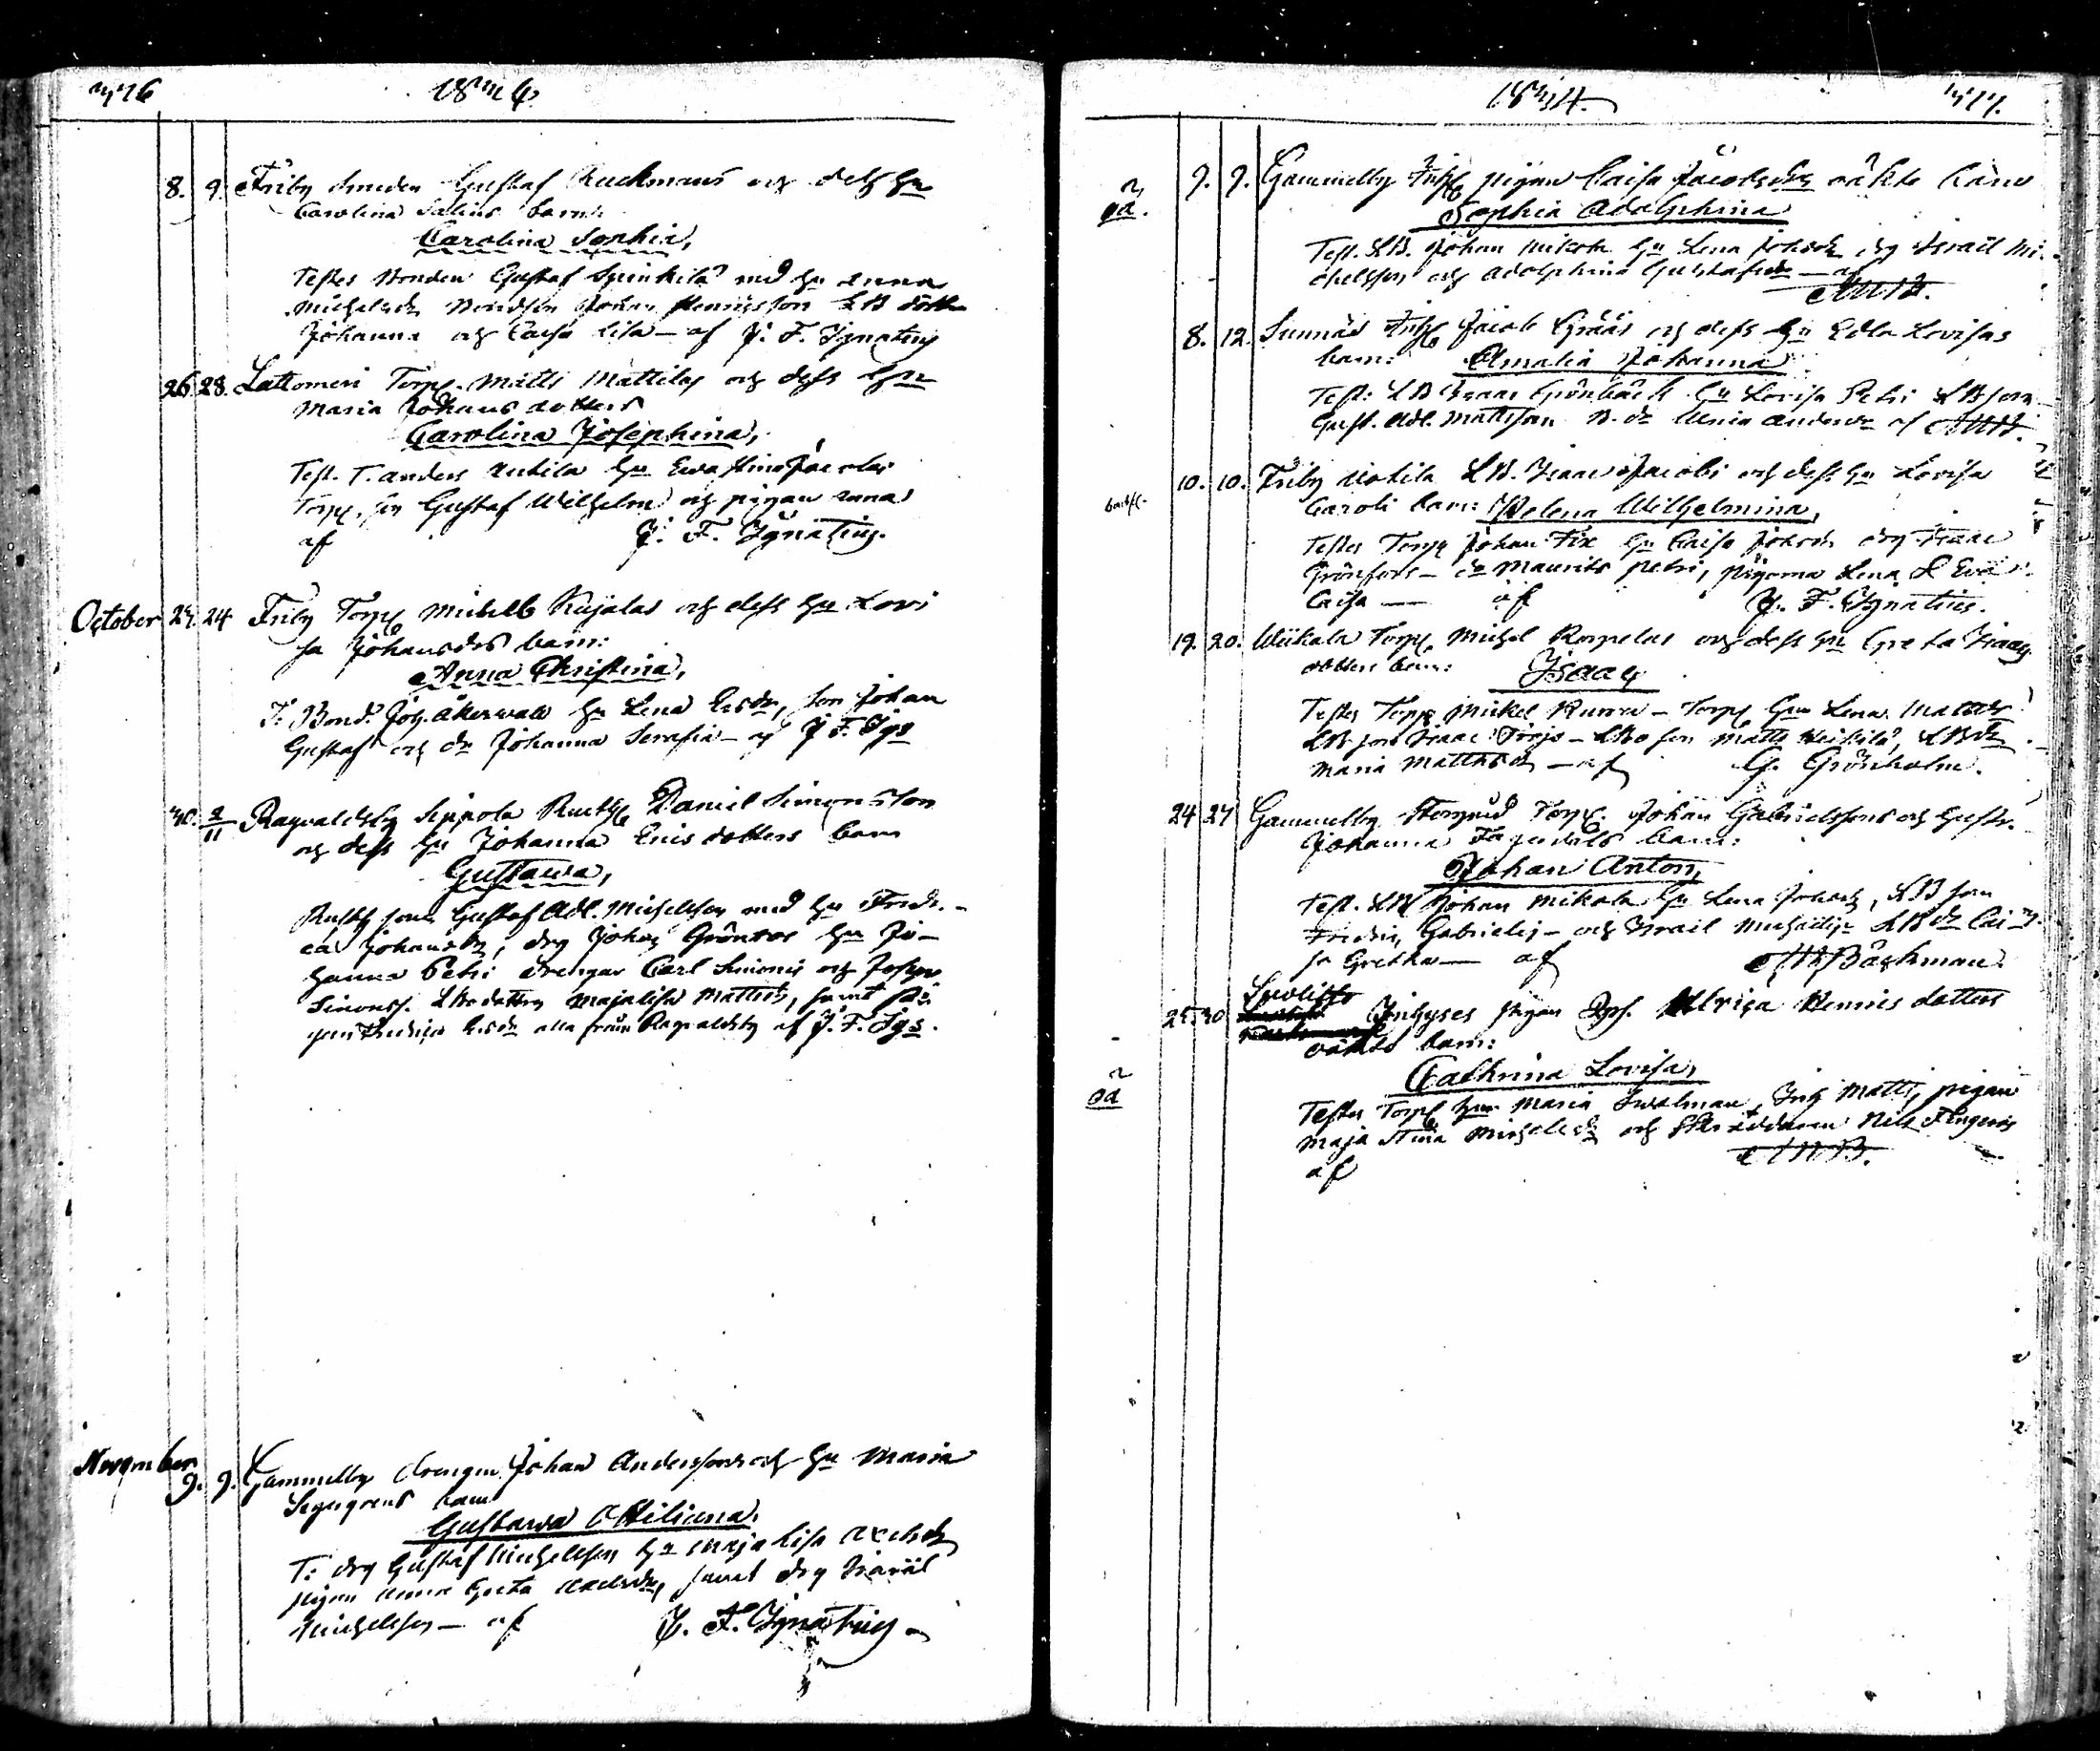 376 1834
8. 9. Friby smeden Gustaf Ruckmans och dess Hu
Carolina Salins barn:
Carolina Sophia,
Testes bonden Gustaf med Hu Anna
Michelsdr Bondson Johan Henricsson LB dotter
Johanna och Caisa Lisa – af J. F. Ignatius
26. 28. Lattomeri Torp. Matts Mattilas och dess Hu
Maria Johans dotters
Carolina Josephina,
Test. T. Anders Anttila Hu Ewa Stina Jacobs
Torp. son Gustaf Wilhelm och pigan Anna
af J. F. Ignatius.
October 24 Friby Torp Michell Kujalas och dess Hu Lovi
sa Johansdrs barn:
Anna Christina,
T: Bond. Joh. Åkerwall Hu Lena Ersdr, son Johan
Gustaf och dr Johanna Serafia – af J. F. Igs
30. 2/11 Ragvaldsby Sippola Rusth Daniel Simonsson
och dess Hu Johanna Erics dotters barn
Gustawa,
Rusth sonen Gustaf Adl. Michelsson med Hu Fredr.-
ca Johansdr, drg Johan Grönroos Hu Jo-
hanna Petri drengar Carl Simonis och Joseph
Simonss. LBo dottern Majalisa Mattsdr, samt pi-
gan Fredrica Ersdr alla från Ragvaldsby af J. F. Igs.
November 9. 9. Gammelby drengen Johan Anderssons och Hu Maria
Segergrens barn
Gustawa Ottiliana.
T: drg Gustaf Michelsson Hu Maja Lisa Axelsdr
pigan Anna Greta Axelsdr, samt drg Israël
Michelsson – af J. F. Ignatius
1834. 377.
oä. 7. 7. Gammelby Inh. pigan Caisa Jacobsdrs oäkta barn
Sophia Adolphina
Test. LB. Johan Mikola Hu Lena Johsdr drg Israël Mi-
chelsson och Adolphina Gustafsdr – af
AMB.
8. 12. Sunnäs Inh. Jacob Gröös och dess Hu Edla Lovisas
barn: Amalia Johanna
Test: LB Isaac Grönbäck Hu Lovisa Petri LB son
Gust. Adl. Mattsson B. dr Ulrica Andersdr af AMB.
10. 10. Friby Uotila LB. Isaac Jacobs och dess Hu Lovisa
Caroli barn: Helena Wilhelmina,
Testes Torp Johan Fix Hu Caisa Johsdr drg Isaac
Grönfors – do Maurits Petri, pigorna Lena & Eva
Caisa — af J. F. Ignatius.
19. 20. Wiikala Torp. Michel Korpelas och dess Hu Greta Isaacs
dotters barn: Isaac
Testes Torp Mickel Kurra – Torp Hu Lena Mattsdr
LB son Isaac Jörjs – LBo son Matts Heikkilä, LB dr
Maria Mattsdr – af G. Grönholm.
24 27 Gammelby Storgård Torp. Johan Gabrielssons och Hustr.
Johanna barn:
Johan Anton,
Test. LB Johan Mikola Hu Lena Johsdr, LB son
Fredric Gabrielss – och Israil Michaëlss LB dr Cai-
sa Gretha — af AMBäckman.
25. 30 Inhyses pigan Ulrica Henrics dotters
oäkta barn:
oä Cathrina Lovisa,
Testes Torp Hu Maria Swalman, Inh Matts, pigan
Maja Stina Michelsdr och Skräddaren Nils
af AMB.